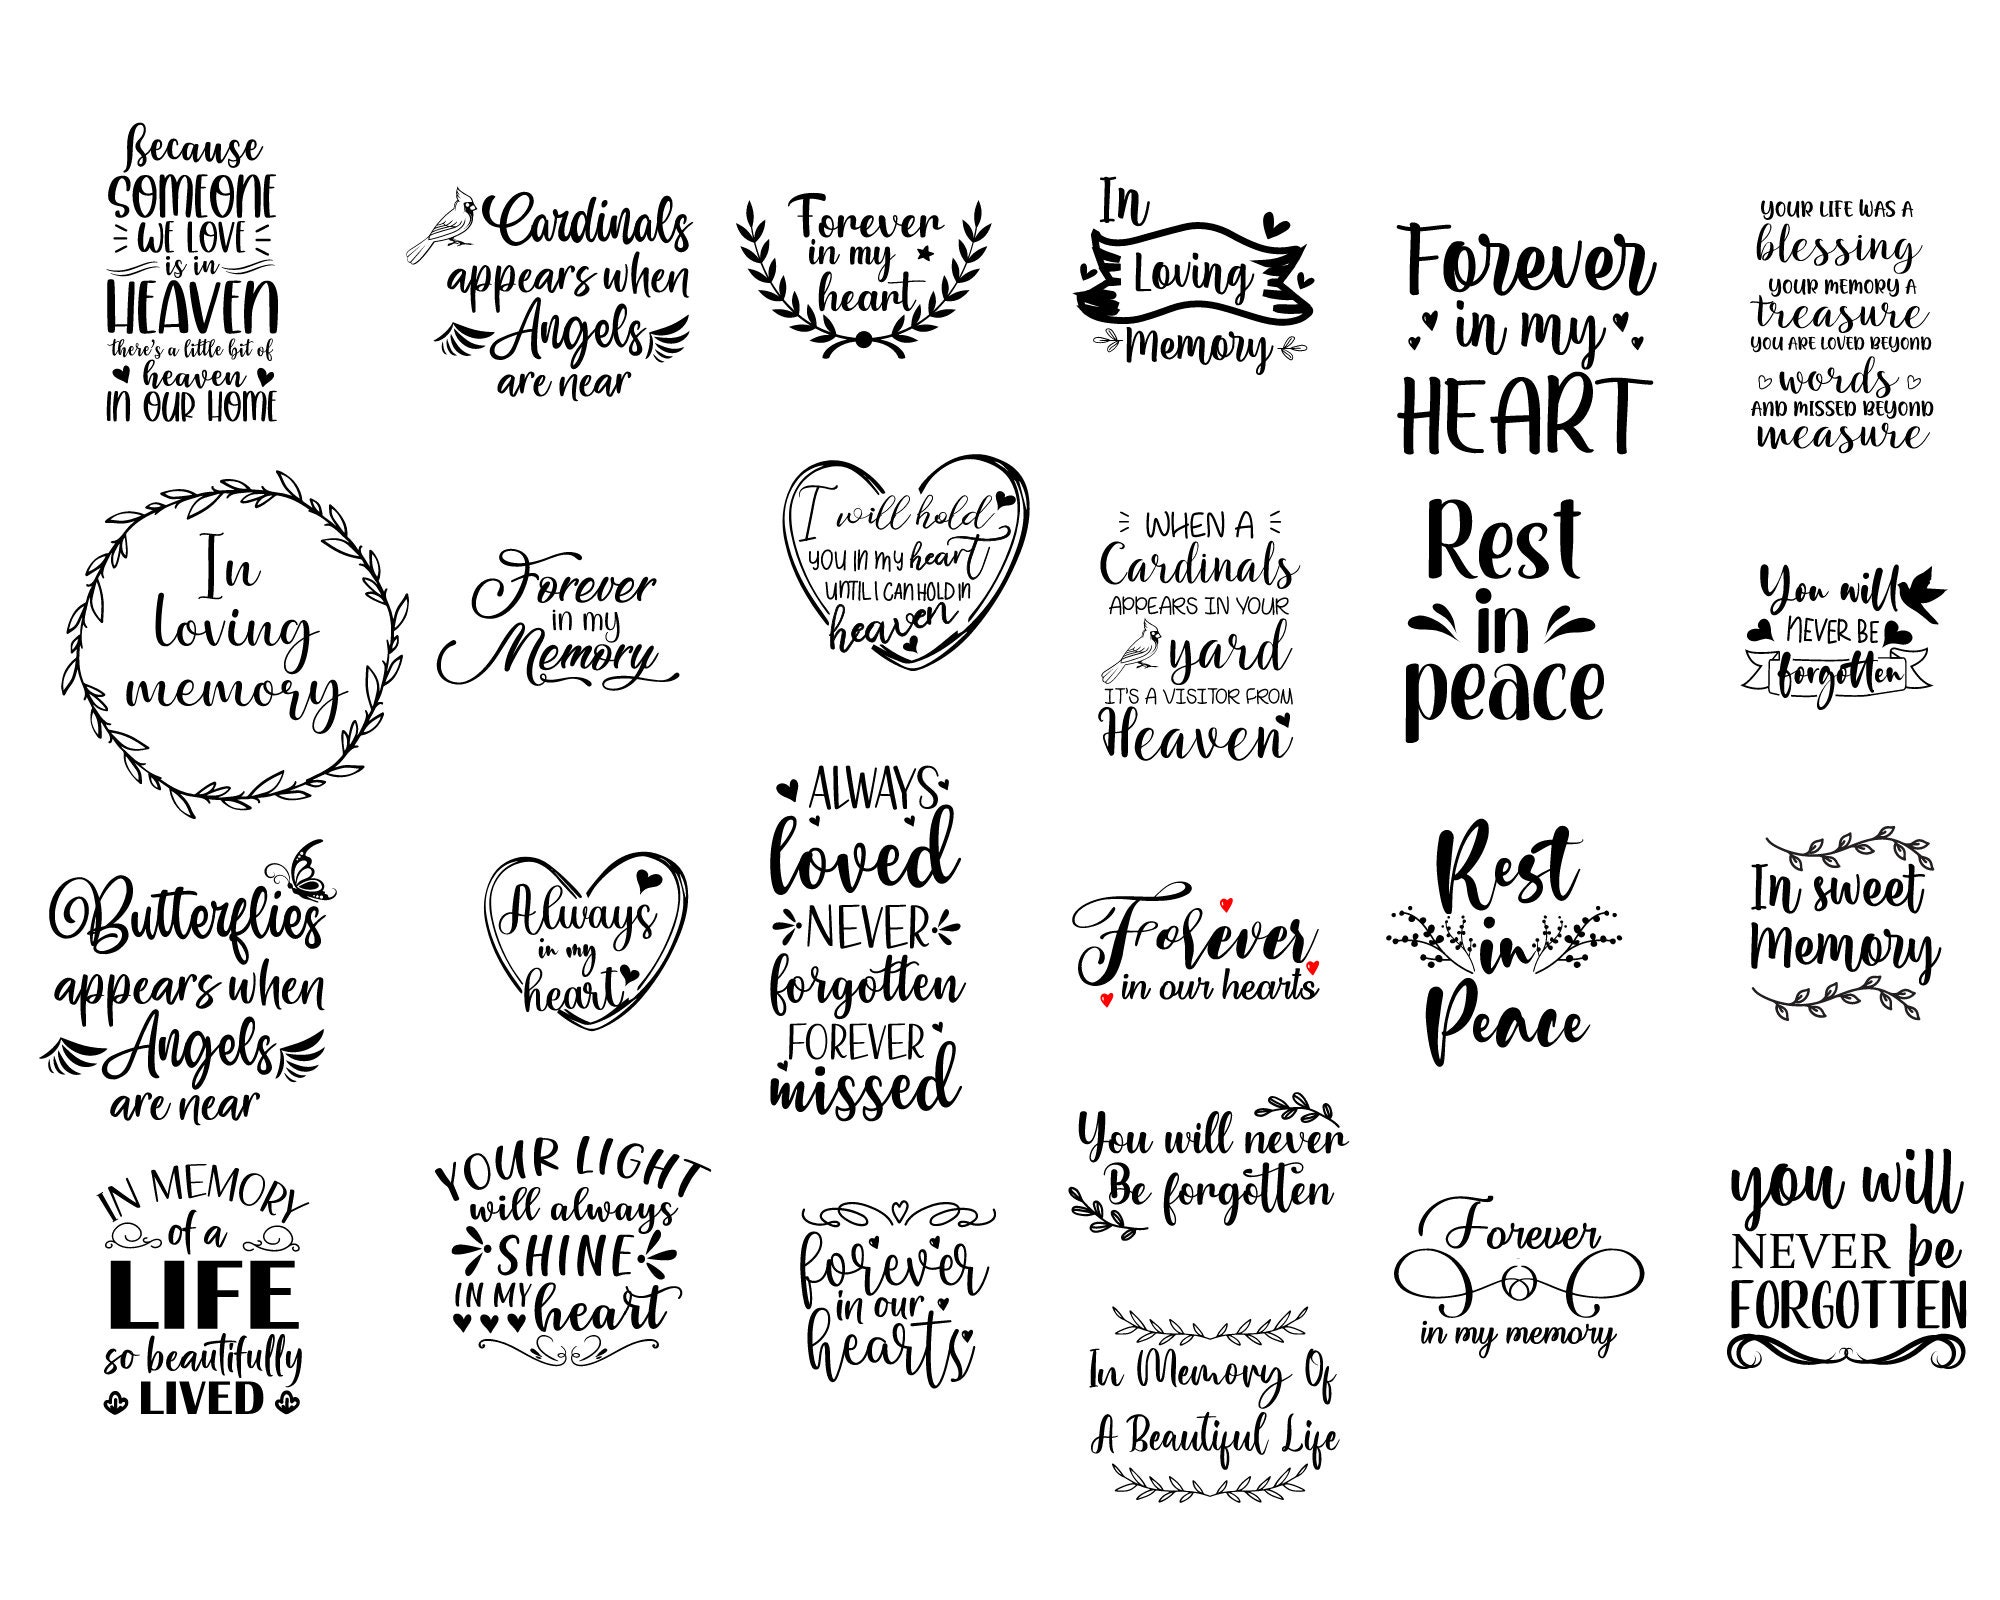 Because
SOMEONE
WE LOVE
is in
HEAVEN
there's a little bit of
heaven
IN OUR HOME
Cardinals
appears when
Angels
are near
Forever
in my
heart
In
Loving
Memory
Forever
in my
HEART
YOUR LIFE WAS A
blessing
YOUR MEMORY A
treasure
YOU ARE LOVED BEYOND
words
AND MISSED BEYOND
measure
In
loving
memory
Forever
in my
Memory
I will hold
YOU IN MY heart
UNTIL I CAN HOLD IN
heaven
WHEN A
Cardinals
APPEARS IN YOUR
yard
IT'S A VISITOR FROM
Heaven
Rest
in
peace
You will
NEVER BE
forgotten
Butterflies
appears when
Angels
are near
Always
in my
heart
ALWAYS
loved
NEVER
forgotten
FOREVER
missed
Forever
in our hearts
Rest
in
Peace
In sweet
Memory
IN MEMORY
of a
LIFE
so beautifully
LIVED
YOUR LIGHT
will always
SHINE
IN MY heart
forever
in our
hearts
You will never
Be forgotten
In Memory Of
A Beautiful Life
Forever
in my memory
you will
NEVER be
FORGOTTEN